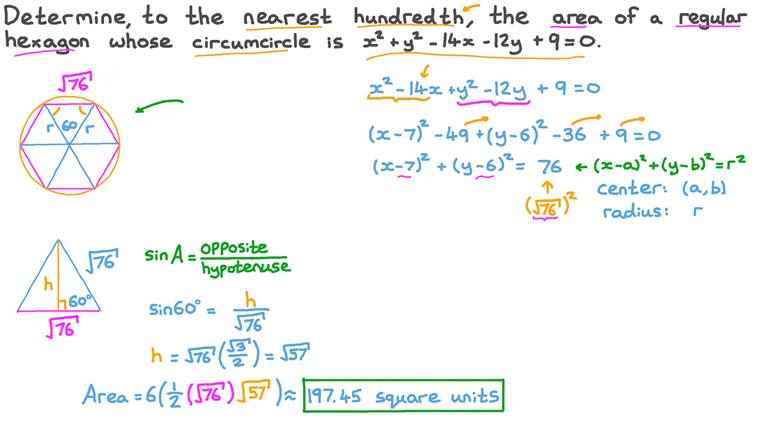 Determine, to the nearest hundredth, the area of a regular
hexagon whose circumcircle is x² + y² - 14x - 12y + 9 = 0.
√76
r 60 r
x² - 14x + y² - 12y + 9 = 0
(x-7)² - 49 + (y-6)² - 36 + 9 = 0
(x-7)² + (y-6)² = 76 ← (x-a)² + (y-b)² = r²
(√76)²
center: (a,b)
radius: r
√76
h
60°
√76
sin A = opposite/hypotenuse
sin60° = h/√76
h = √76(√3/2) = √57
Area = 6(1/2(√76)√57) ≈ 197.45 square units